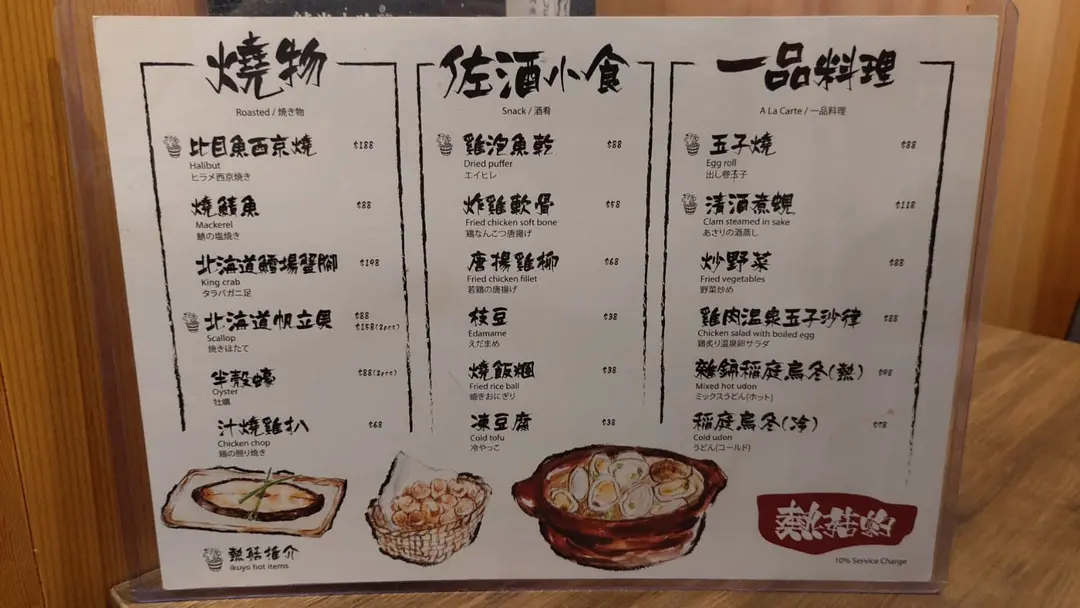 燒物
Roasted / 焼き物
比目魚西京燒 $188
Halibut
ヒラメ西京焼き
燒鯖魚 $88
Mackerel
鯖の塩焼き
北海道鱈場蟹腳 $198
King crab
タラバガニ足
北海道帆立貝 $88
$158(2pcs)
Scallop
焼きほたて
半殼蠔 $88(2pcs)
Oyster
牡蠣
汁燒雞扒 $68
Chicken chop
鶏の照り焼き
佐酒小食
Snack / 酒肴
雞泡魚乾 $88
Dried puffer
エイヒレ
炸雞軟骨 $58
Fried chicken soft bone
鶏なんこつ唐揚げ
唐揚雞柳 $68
Fried chicken fillet
若鶏の唐揚げ
枝豆 $38
Edamame
えだまめ
燒飯糰 $38
Fried rice ball
焼きおにぎり
凍豆腐 $38
Cold tofu
冷やっこ
一品料理
A La Carte / 一品料理
玉子燒 $88
Egg roll
出し巻玉子
清酒煮蜆 $118
Clam steamed in sake
あさりの酒蒸し
炒野菜 $88
Fried vegetables
野菜炒め
雞肉溫泉玉子沙律 $88
Chicken salad with boiled egg
鶏炙り温泉卵サラダ
雜錦稻庭烏冬(熱) $98
Mixed hot udon
ミックスうどん(ホット)
稻庭烏冬(冷) $78
Cold udon
うどん(コールド)
熱菇推介
ikuyo hot items
熱菇的
10% Service Charge